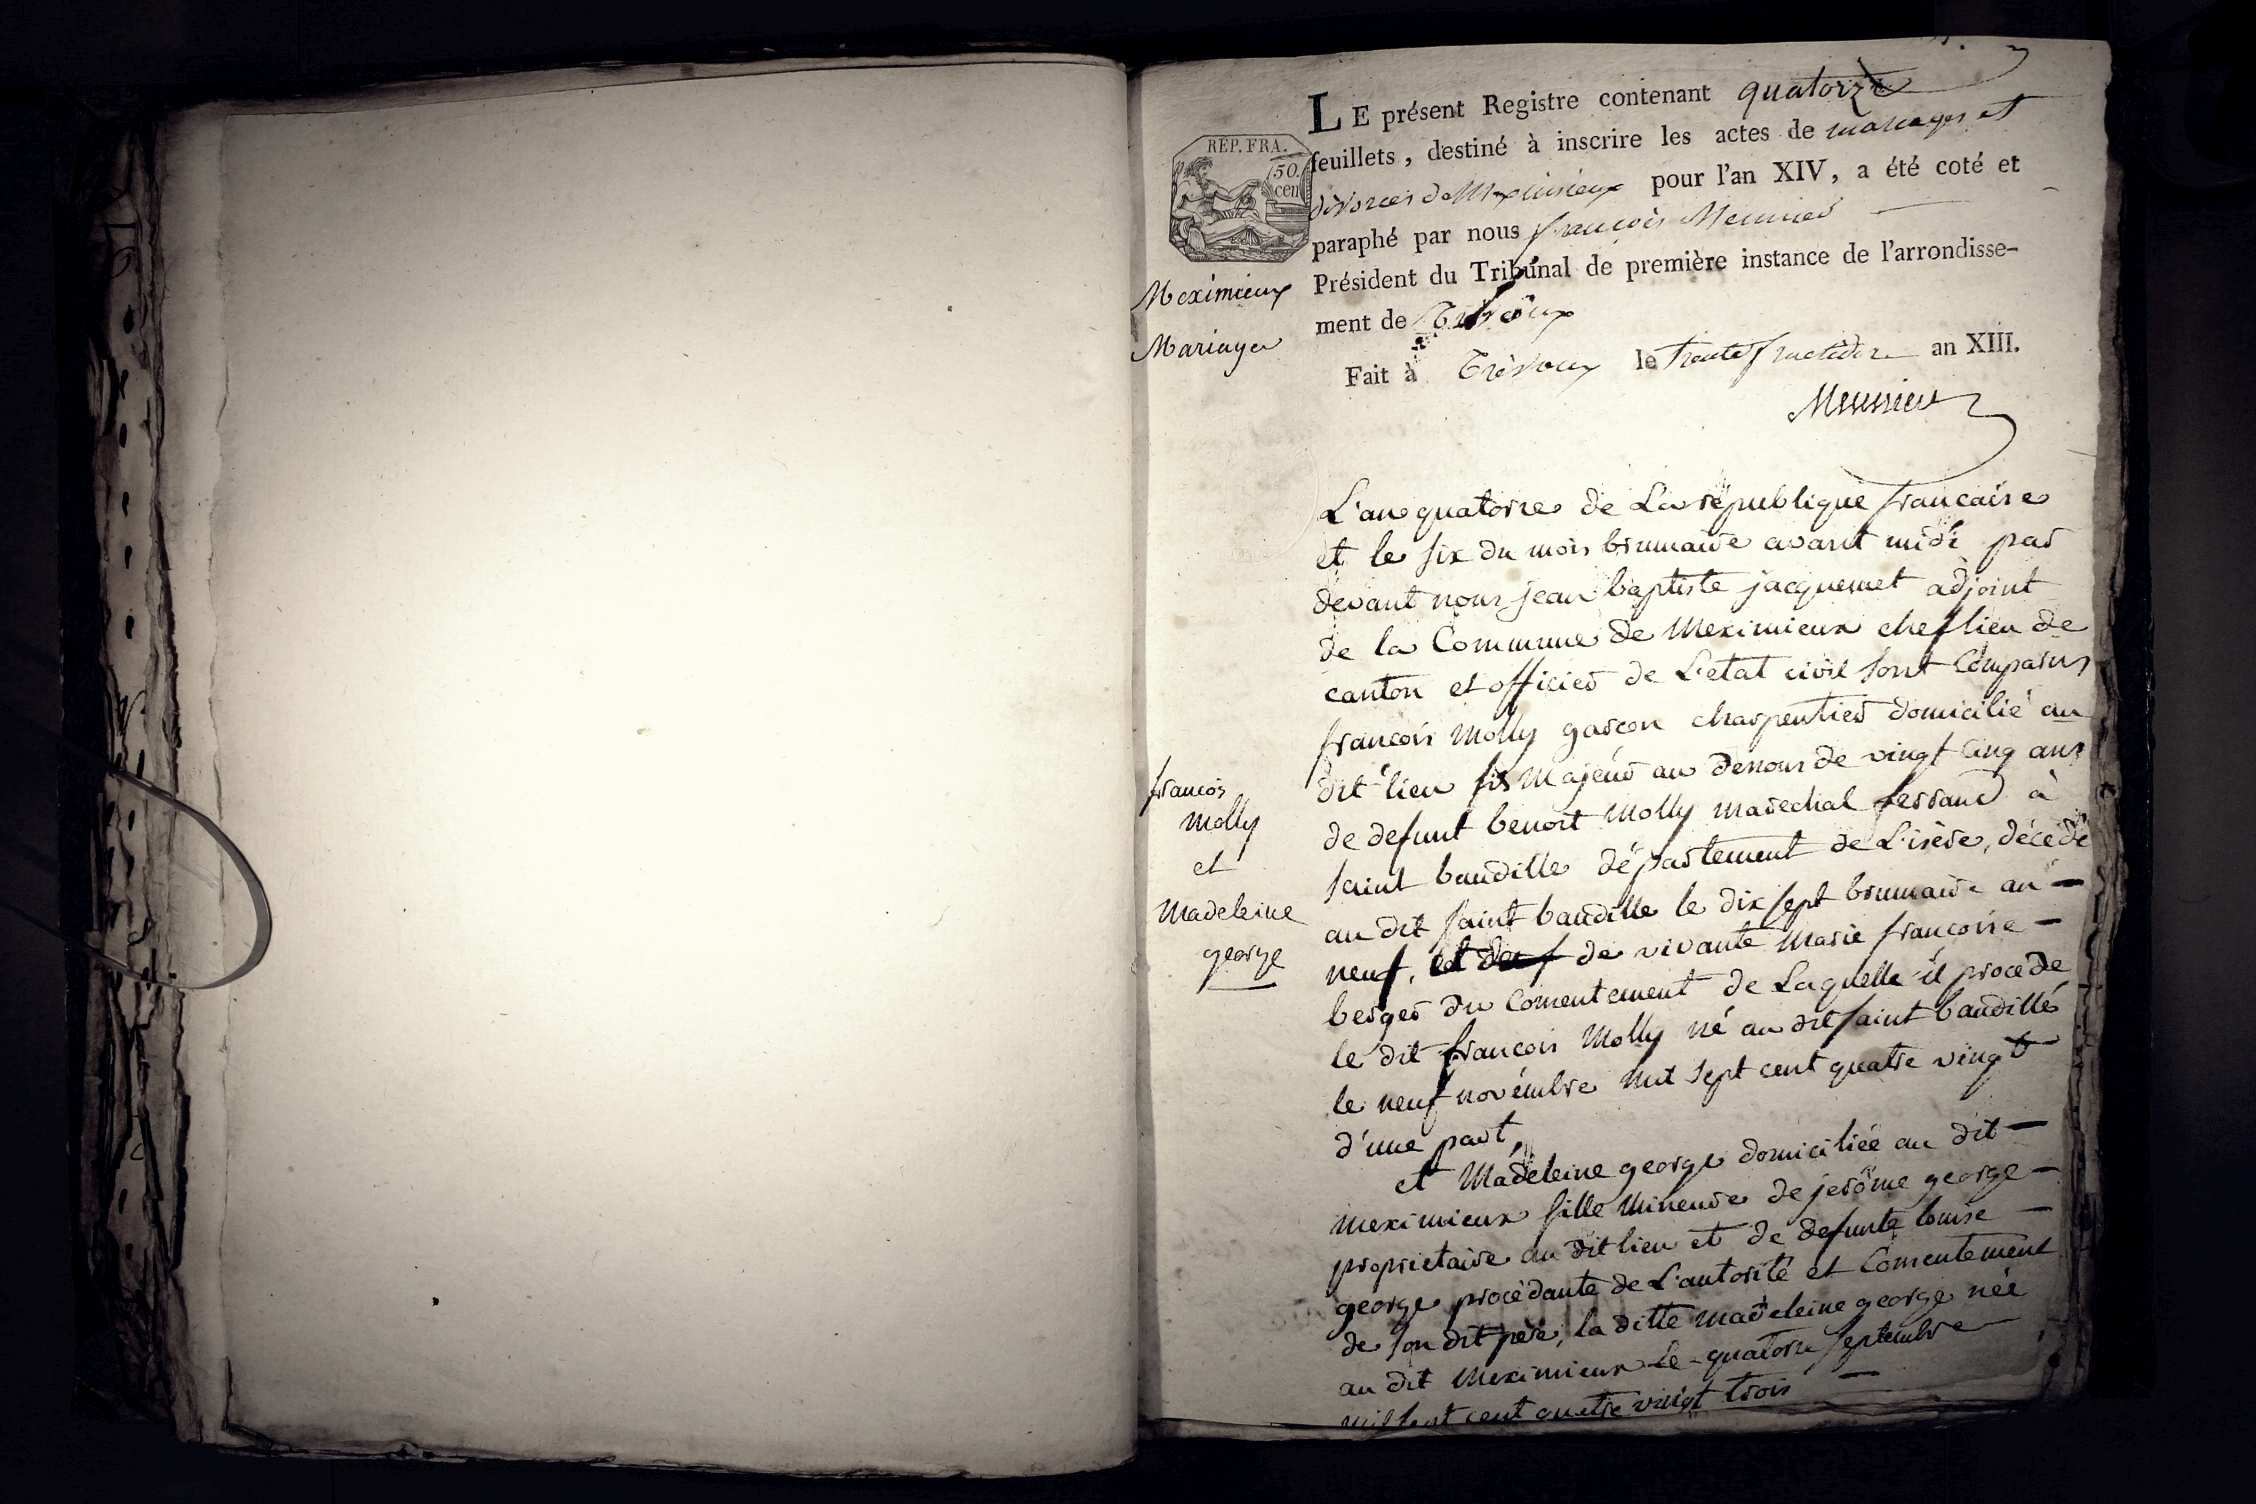 REP. FRA.
50.
cen
LE présent Registre contenant quatorze
feuillets, destiné à inscrire les actes de mariages et
divorces de Meximieux pour l'an XIV, a été coté et
paraphé par nous françois Meunier
Président du Tribunal de première instance de l'arrondisse-
ment de Trévoux
Fait à Trévoux le trente fructidor an XIII.
Meunier
Meximieux
Mariages
L'an quatorze de La république francaise
et le six du mois brumaire avant midi par
devant nous jean baptiste jacquemet adjoint
de la Commune de Meximieux chef lieu de
canton et officier de L'etat civil sont Comparus
francois Molly garcon charpentier domicilié au
dit lieu fils Majeur au dessous de vingt cinq ans
de defunt benoit Molly marechal ferrand à
saint baudille département de L'isère, décédé
au dit saint baudille le dix sept brumaire an
neuf, de vivante Marie francoise
berger du Consentement de Laquelle il procede
le dit francois Molly né au dit saint baudille
le neuf novembre mil sept cent quatre vingt
d'une part,
et Madeleine george domiciliée au dit
meximieux fille Mineure de jerôme george
proprietaire au dit lieu et de defunte louise
george procédante de L'autorité et Consentement
de son dit père, la ditte madeleine george née
au dit Meximieux le quatorze septembre
mil sept cent quatre vingt trois
francois
Molly
et
Madeleine
george